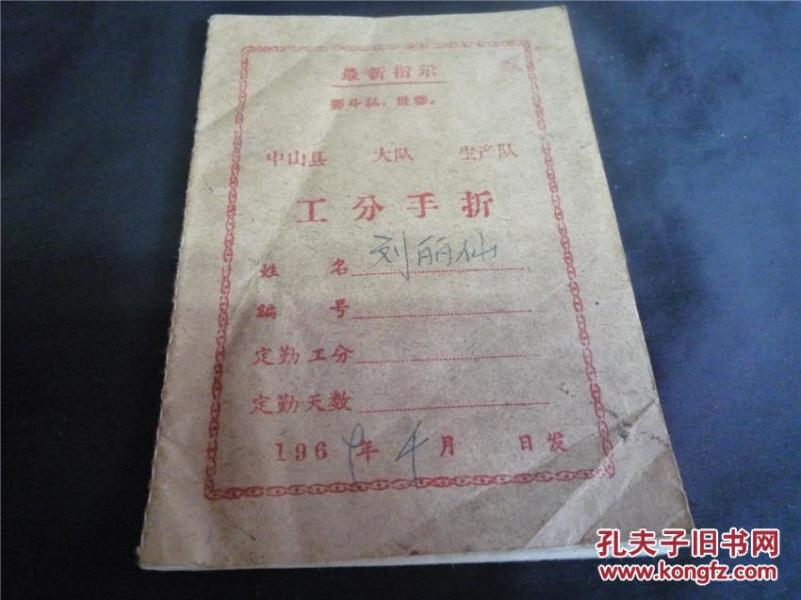 最新指示
要斗私，批修。
中山县 大队 生产队
工分手折
姓 名 刘丽仙
编 号
定勤工分
定勤天数
1969年4月 日发
孔夫子旧书网
www.kongfz.com